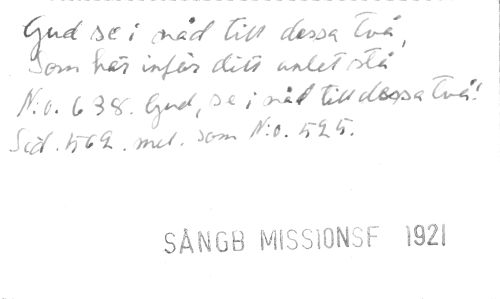 Gud se i nåd till dessa två,
som här inför ditt anlet stå
N:o. 638. Gud, se i nåd till dessa två!
Sid. 562. mel. som N:o. 525.
SÅNGB MISSIONSF 1921